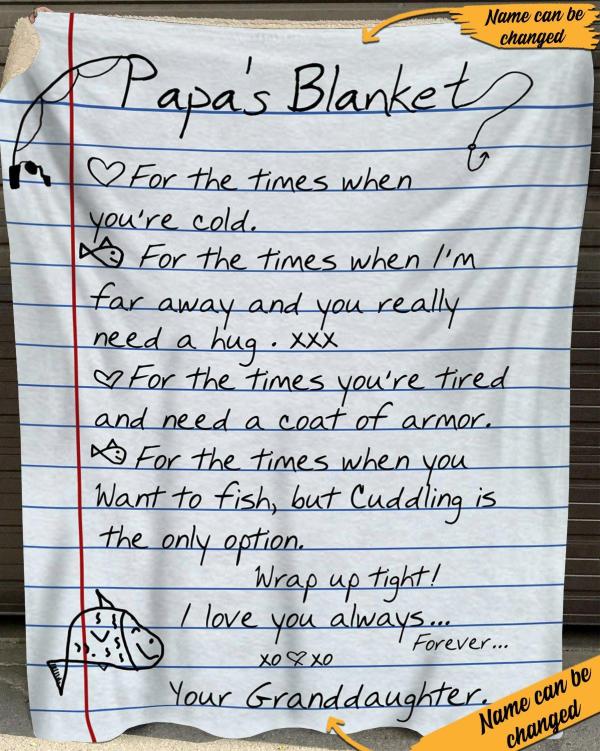 Name can be
changed
Papa's Blanket
For the times when
you're cold.
For the times when I'm
far away and you really
need a hug. xxx
For the times you're tired
and need a coat of armor.
For the times when you
Want to fish, but Cuddling is
the only option.
Wrap up tight!
I love you always...
Forever...
xo xo
Your Granddaughter.
Name can be
changed